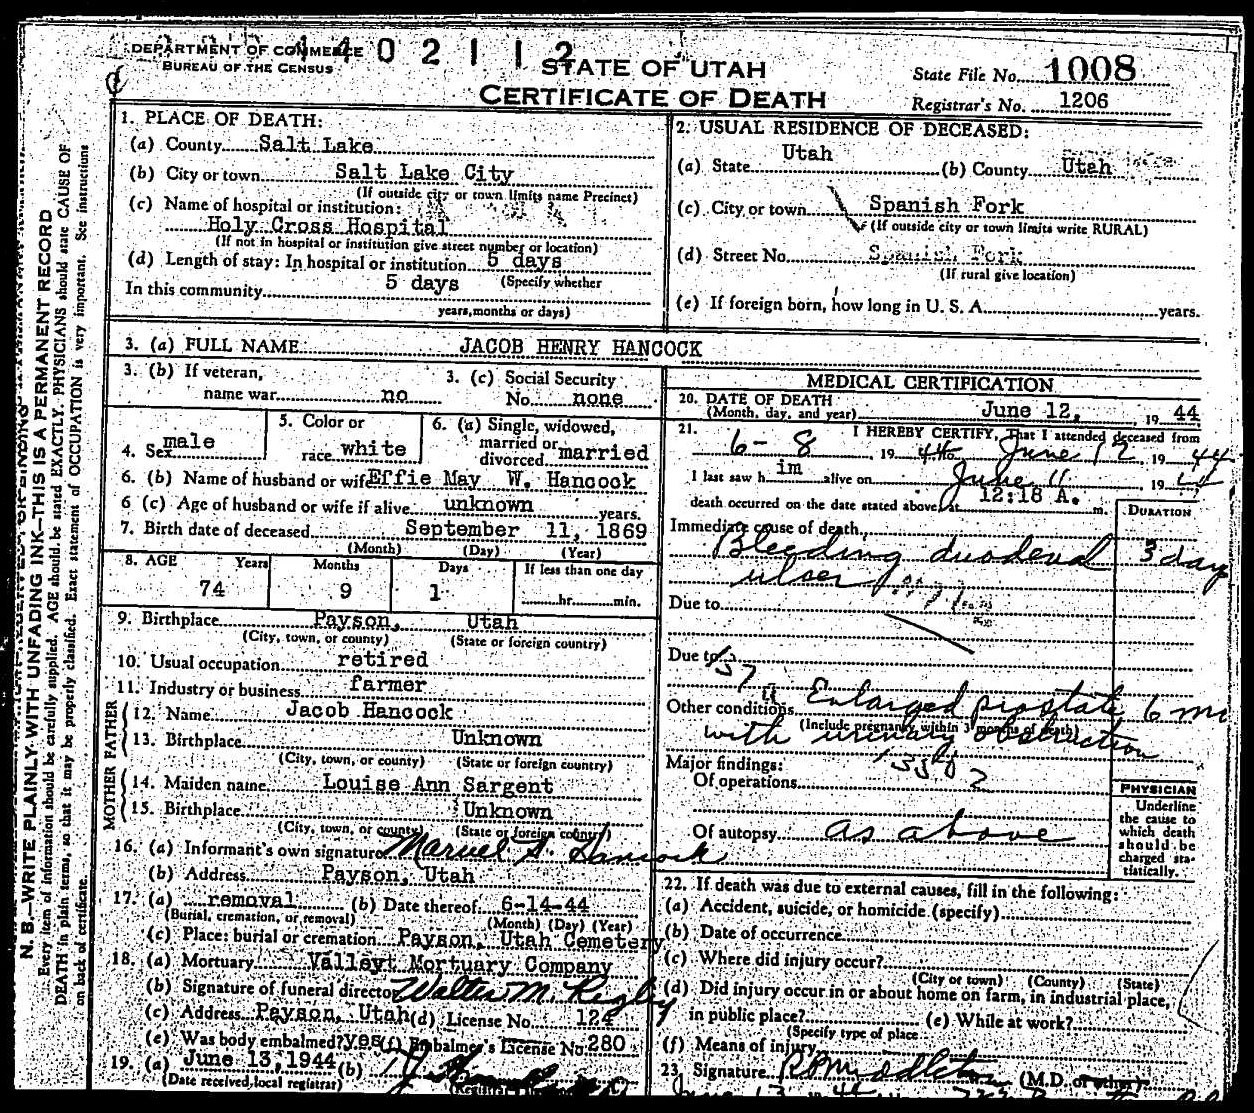 DEPARTMENT OF COMMERCE
BUREAU OF THE CENSUS
4402112
STATE OF UTAH
CERTIFICATE OF DEATH
State File No. 1008
Registrar's No. 1206
1. PLACE OF DEATH:
(a) County Salt Lake
(b) City or town Salt Lake City
(If outside city or town limits name Precinct)
(c) Name of hospital or institution:
Holy Cross Hospital
(If not in hospital or institution give street number or location)
(d) Length of stay: In hospital or institution 5 days
(Specify whether
In this community 5 days
years, months or days)
2. USUAL RESIDENCE OF DECEASED:
(a) State Utah (b) County Utah
(c) City or town Spanish Fork
(If outside city or town limits write RURAL)
(d) Street No. Spanish Fork
(If rural give location)
(e) If foreign born, how long in U. S. A. years.
3. (a) FULL NAME JACOB HENRY HANCOCK
3. (b) If veteran,
name war no
3. (c) Social Security
No. none
4. Sex male
5. Color or
race white
6. (a) Single, widowed,
married or
divorced married
6. (b) Name of husband or wife Effie May W. Hancock
6 (c) Age of husband or wife if alive unknown years.
7. Birth date of deceased September 11, 1869
(Month) (Day) (Year)
8. AGE Years Months Days If less than one day
74 9 1 hr. min.
9. Birthplace Payson, Utah
(City, town, or county) (State or foreign country)
10. Usual occupation retired
11. Industry or business farmer
FATHER
12. Name Jacob Hancock
13. Birthplace Unknown
(City, town, or county) (State or foreign country)
MOTHER
14. Maiden name Louise Ann Sargent
15. Birthplace Unknown
(City, town, or county) (State or foreign country)
16. (a) Informant's own signature Marvel S. Hancock
(b) Address Payson, Utah
17. (a) removal (b) Date thereof 6-14-44
(Burial, cremation, or removal) (Month) (Day) (Year)
(c) Place: burial or cremation Payson, Utah Cemetery
18. (a) Mortuary Valleyt Mortuary Company
(b) Signature of funeral director Walter M. Rigley
(c) Address Payson, Utah (d) License No. 124
(e) Was body embalmed? yes (f) Embalmer's License No. 280
19. (a) June 13, 1944 (b)
(Date received, local registrar)
MEDICAL CERTIFICATION
20. DATE OF DEATH
(Month, day, and year) June 12, 1944
21. I HEREBY CERTIFY, That I attended deceased from
6-8 1944 to June 12 1944
I last saw him alive on June 11 19
death occurred on the date stated above at 12:18 A. m.
DURATION
Immediate cause of death
Bleeding duodenal 3 day
ulcer
Due to
Due to
137
Other conditions Enlarged prostate 6 mo
(Include pregnancy within 3 months of death)
with urinary obstruction
Major findings:
Of operations
Of autopsy as above
PHYSICIAN
Underline
the cause to
which death
should be
charged sta-
tistically.
22. If death was due to external causes, fill in the following:
(a) Accident, suicide, or homicide (specify)
(b) Date of occurrence
(c) Where did injury occur?
(City or town) (County) (State)
(d) Did injury occur in or about home on farm, in industrial place,
in public place? (e) While at work?
(Specify type of place
(f) Means of injury
23. Signature R D Middleton (M.D. or other)
N. B.—WRITE PLAINLY WITH UNFADING INK—THIS IS A PERMANENT RECORD
Every item of information should be carefully supplied. AGE should be stated EXACTLY. PHYSICIANS should state CAUSE OF
DEATH in plain terms, so that it may be properly classified. Exact statement of OCCUPATION is very important. See instructions
on back of certificate.